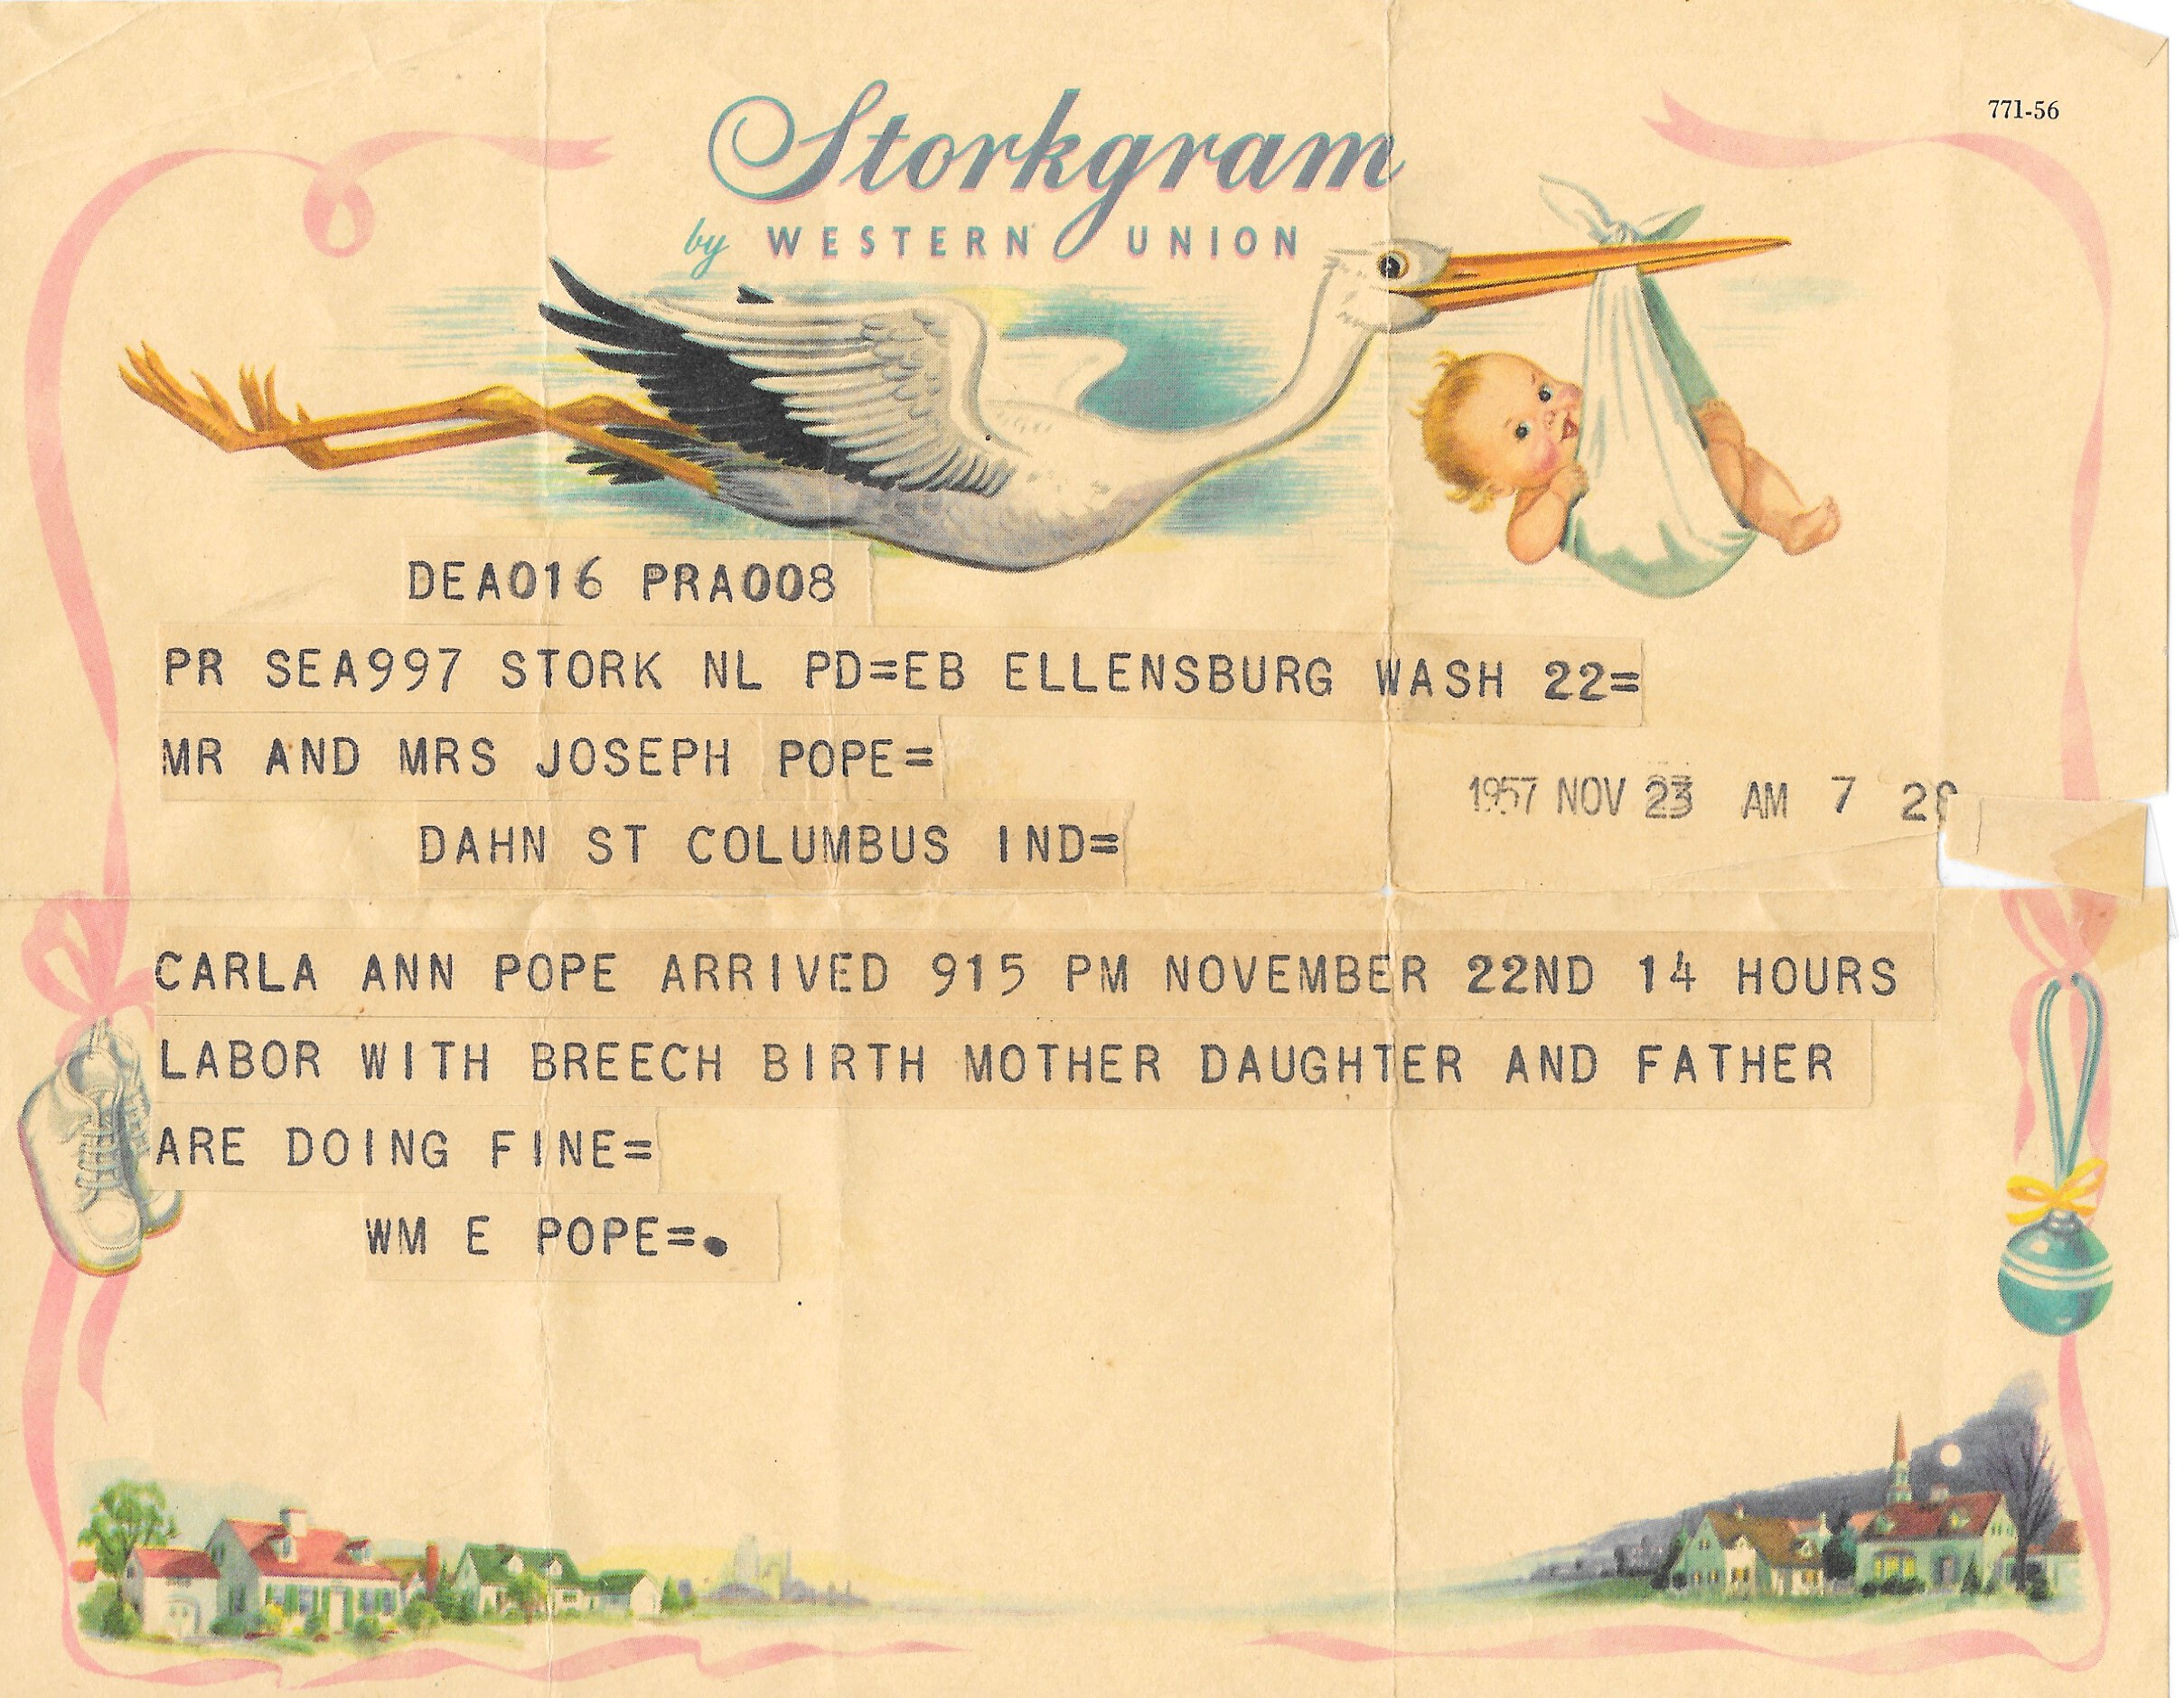 771-56
Storkgram
by WESTERN UNION
DEA016 PRA008
PR SEA997 STORK NL PD=EB ELLENSBURG WASH 22=
MR AND MRS JOSEPH POPE=
1957 NOV 23 AM 7
DAHN ST COLUMBUS IND=
CARLA ANN POPE ARRIVED 915 PM NOVEMBER 22ND 14 HOURS
LABOR WITH BREECH BIRTH MOTHER DAUGHTER AND FATHER
ARE DOING FINE=
WM E POPE=.